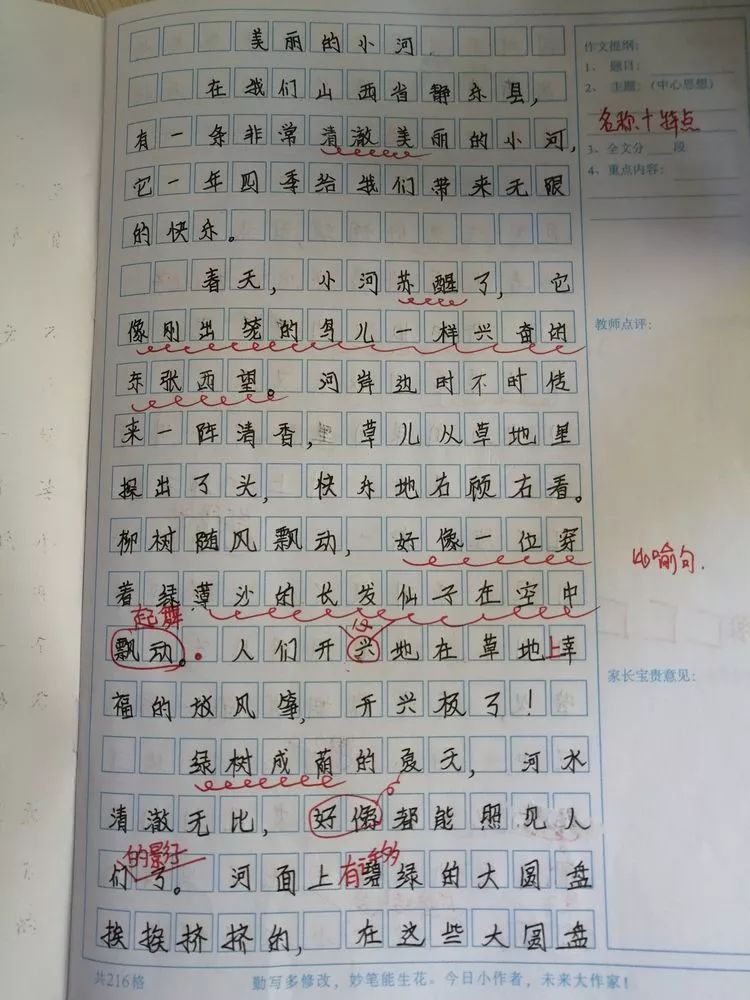 美丽的小河
在我们山西省静乐县，
有一条非常清澈美丽的小河，
它一年四季给我们带来无限
的快乐。
春天，小河苏醒了，它
像刚出笼的鸟儿一样兴奋的
东张西望。河岸边时不时传
来一阵清香，草儿从草地里
探出了头，快乐地右顾右看。
柳树随风飘动，好像一位穿
着绿薄沙的长发仙子在空中
起舞
飘动。人们开兴地在草地上幸
福的放风筝，开兴极了！
绿树成荫的夏天，河水
清澈无比，好像都能照见人
的影子
们了。河面上有许多碧绿的大圆盘
挨挨挤挤的，在这些大圆盘
共216格
勤写多修改，妙笔能生花。今日小作者，未来大作家！
作文提纲：
1、题目：
2、主题：（中心思想）
名称+特点
3、全文分 段
4、重点内容：
教师点评：
比喻句.
家长宝贵意见：